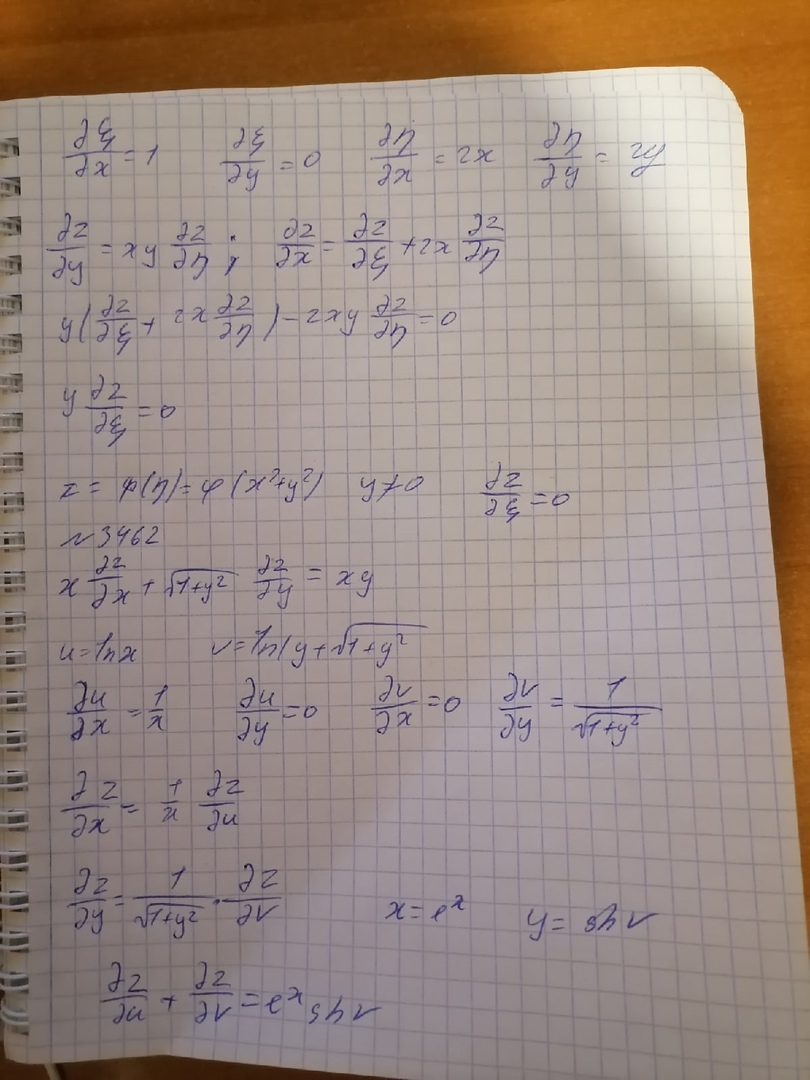 ∂ξ/∂x = 1 ∂ξ/∂y = 0 ∂η/∂x = 2x ∂η/∂y = 2y
∂z/∂y = xy ∂z/∂η ; ∂z/∂x = ∂z/∂ξ + 2x ∂z/∂η
y(∂z/∂ξ + 2x ∂z/∂η) - 2xy ∂z/∂η = 0
y ∂z/∂ξ = 0
z = φ(η) = φ(x²+y²) y≠0 ∂z/∂ξ = 0
N3462
x ∂z/∂x + √1+y² ∂z/∂y = xy
u = lnx v = ln(y+√1+y²
∂u/∂x = 1/x ∂u/∂y = 0 ∂v/∂x = 0 ∂v/∂y = 1/√1+y²
∂z/∂x = 1/x ∂z/∂u
∂z/∂y = 1/√1+y² · ∂z/∂v x = eˣ y = sh v
∂z/∂u + ∂z/∂v = eˣ sh v